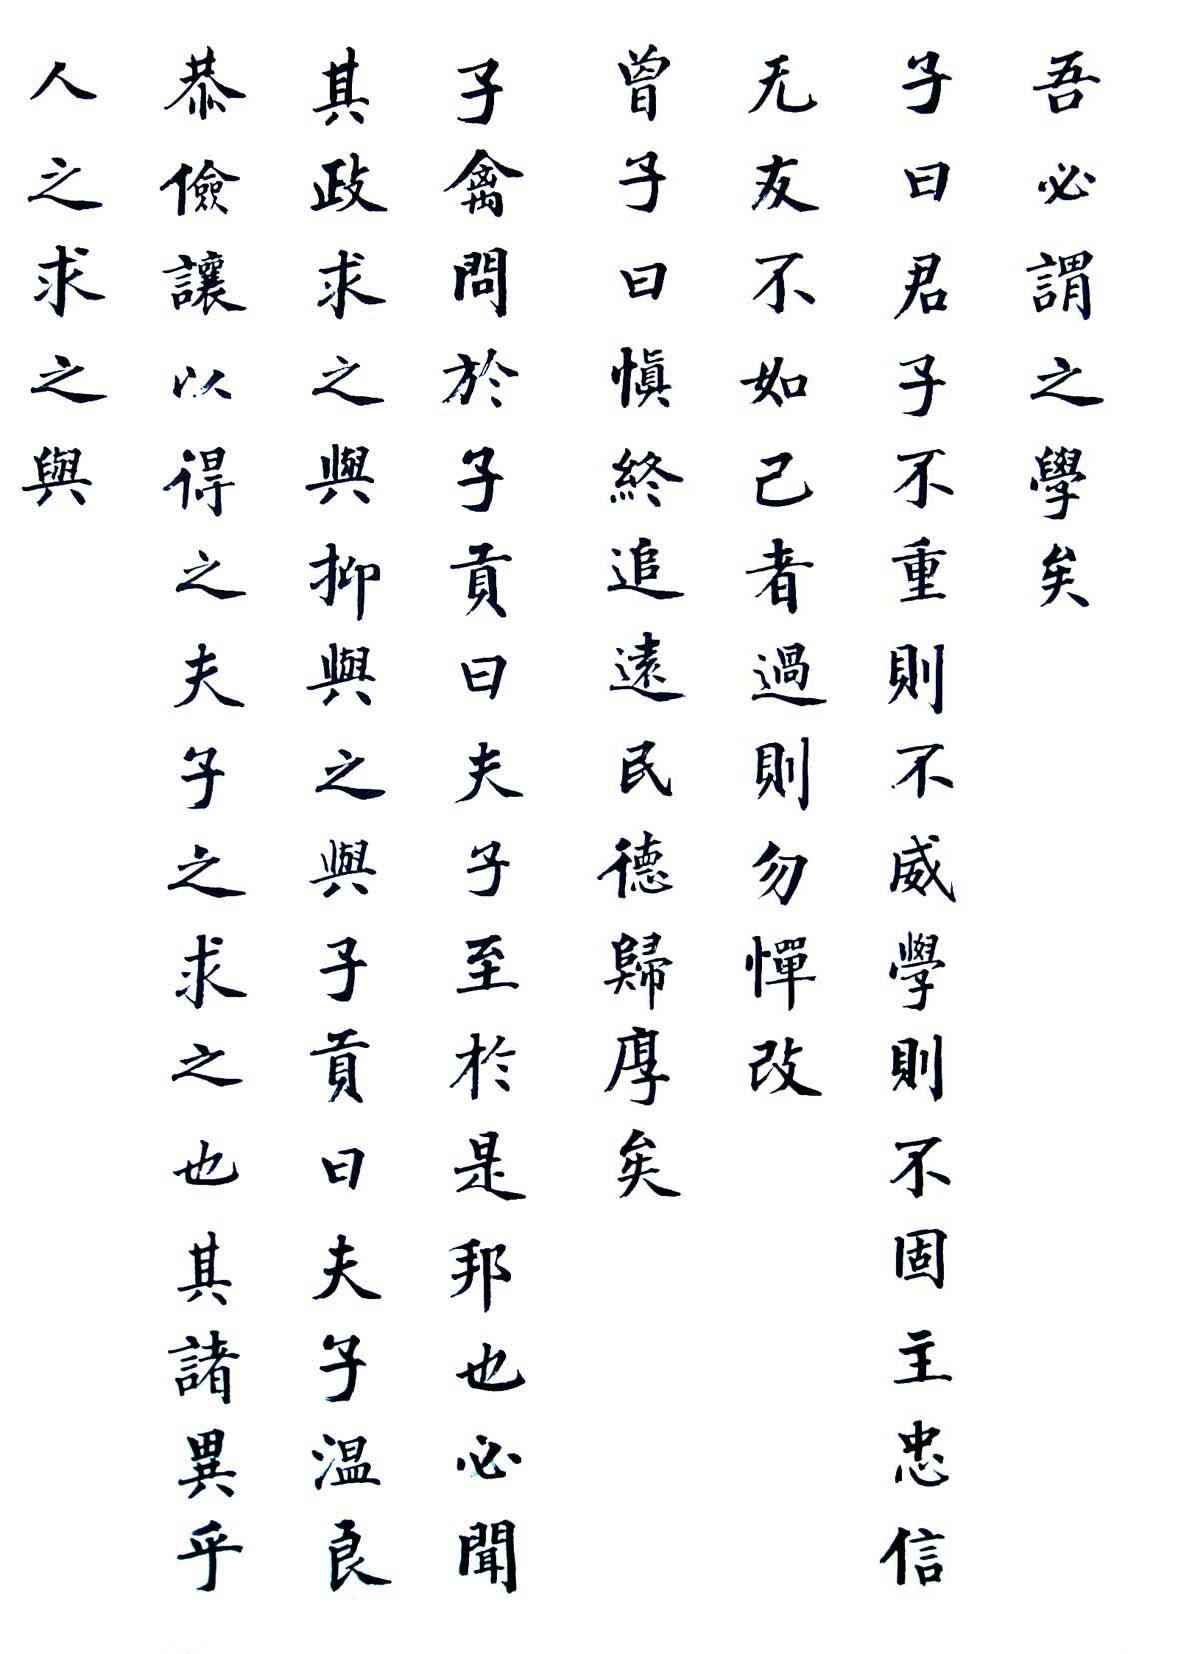 吾必謂之學矣
子曰君子不重則不威學則不固主忠信
无友不如己者過則勿憚改
曾子曰慎終追遠民德歸厚矣
子禽問於子貢曰夫子至於是邦也必聞
其政求之與抑與之與子貢曰夫子温良
恭儉讓以得之夫子之求之也其諸異乎
人之求之與